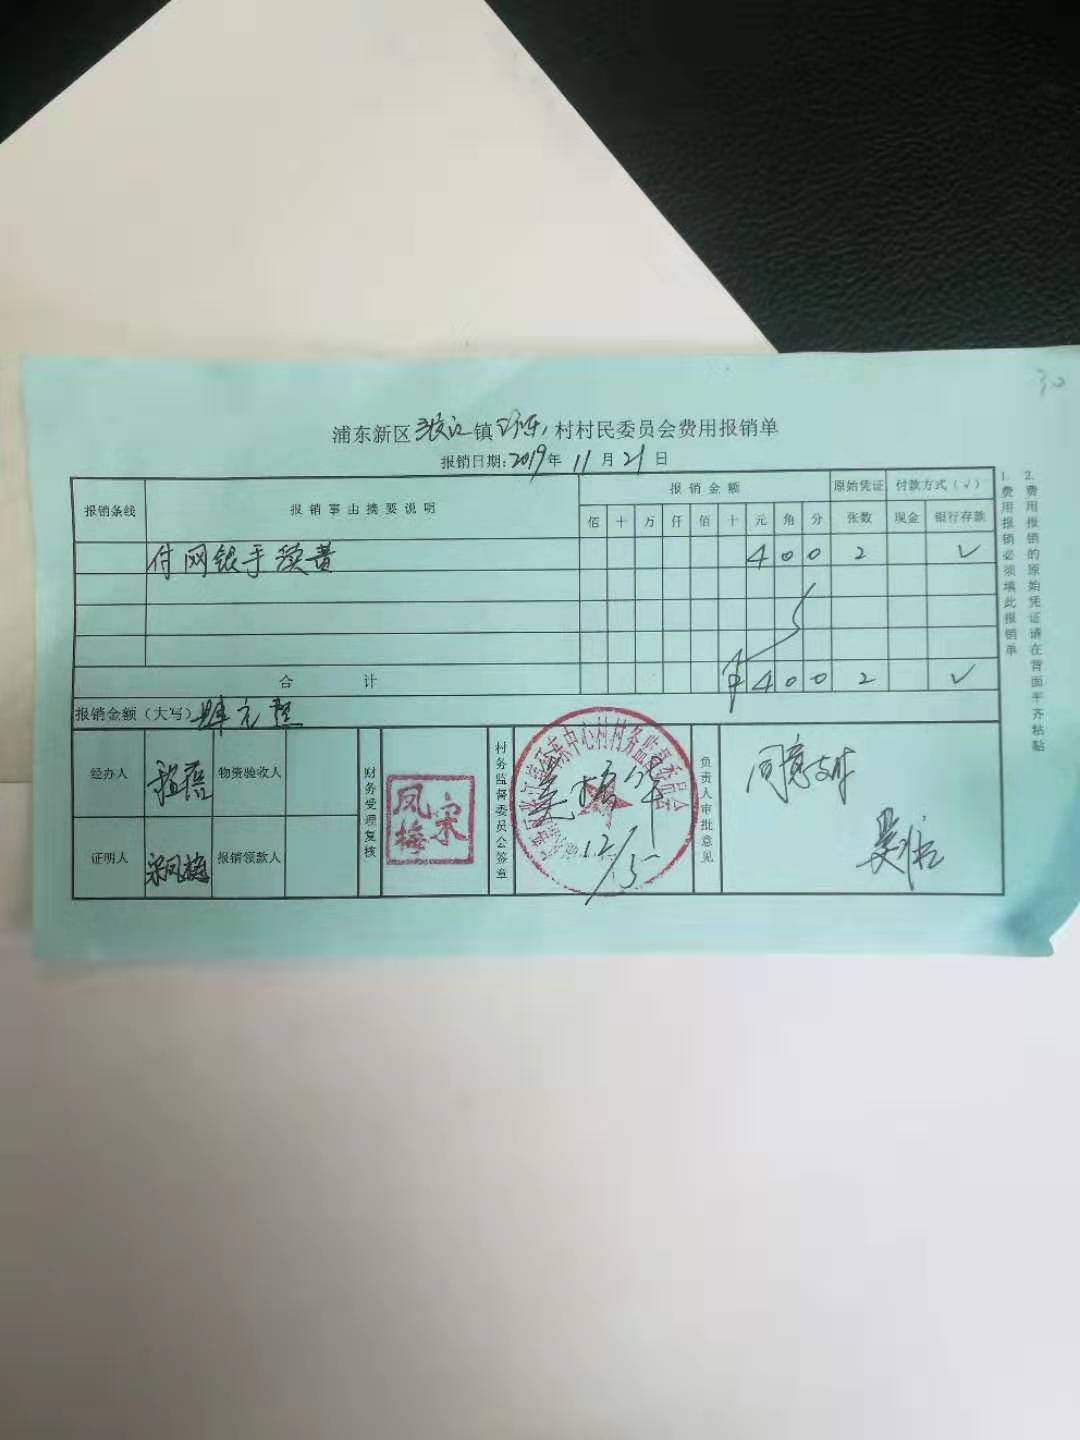 30
浦东新区张江镇环东村村民委员会费用报销单
报销日期:2019年11月21日
报销条线 报销事由摘要说明 报销金额 原始凭证 付款方式(√)
佰 十 万 仟 佰 十 元 角 分 张数 现金 银行存款
付网银手续费 4 0 0 2 √
合计 ¥ 4 0 0 2 √
报销金额(大写) 肆元整
经办人 物资验收人
证明人 宋凤梅 报销领款人
财务受理复核
宋凤梅
村务监督委员会签章
张江镇环东中心村村务监督委员会
12/5
负责人审批意见
同意支付
1.费用报销必须填此报销单
2.费用报销的原始凭证请在背面平齐粘贴